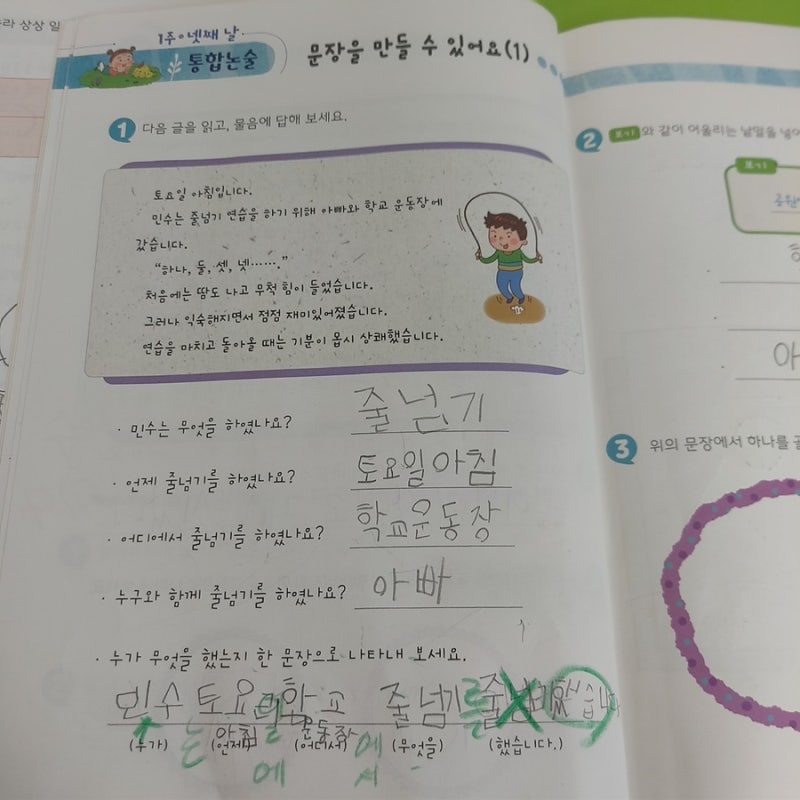 라 상상 일
1주 넷째 날
통합논술
문장을 만들 수 있어요(1)
1 다음 글을 읽고, 물음에 답해 보세요.
토요일 아침입니다.
민수는 줄넘기 연습을 하기 위해 아빠와 학교 운동장에
갔습니다.
“하나, 둘, 셋, 넷…….”
처음에는 땀도 나고 무척 힘이 들었습니다.
그러나 익숙해지면서 점점 재미있어졌습니다.
연습을 마치고 돌아올 때는 기분이 몹시 상쾌했습니다.
· 민수는 무엇을 하였나요? 줄넘기
· 언제 줄넘기를 하였나요? 토요일아침
· 어디에서 줄넘기를 하였나요? 학교운동장
· 누구와 함께 줄넘기를 하였나요? 아빠
· 누가 무엇을 했는지 한 문장으로 나타내 보세요.
민수 토요일 학교 줄넘기를 했습니다
는 아침에 운동장에서
(누가) (언제) (어디서) (무엇을) (했습니다.)
2 보기 와 같이 어울리는 낱말을 넣어
보기
아
3 위의 문장에서 하나를 골